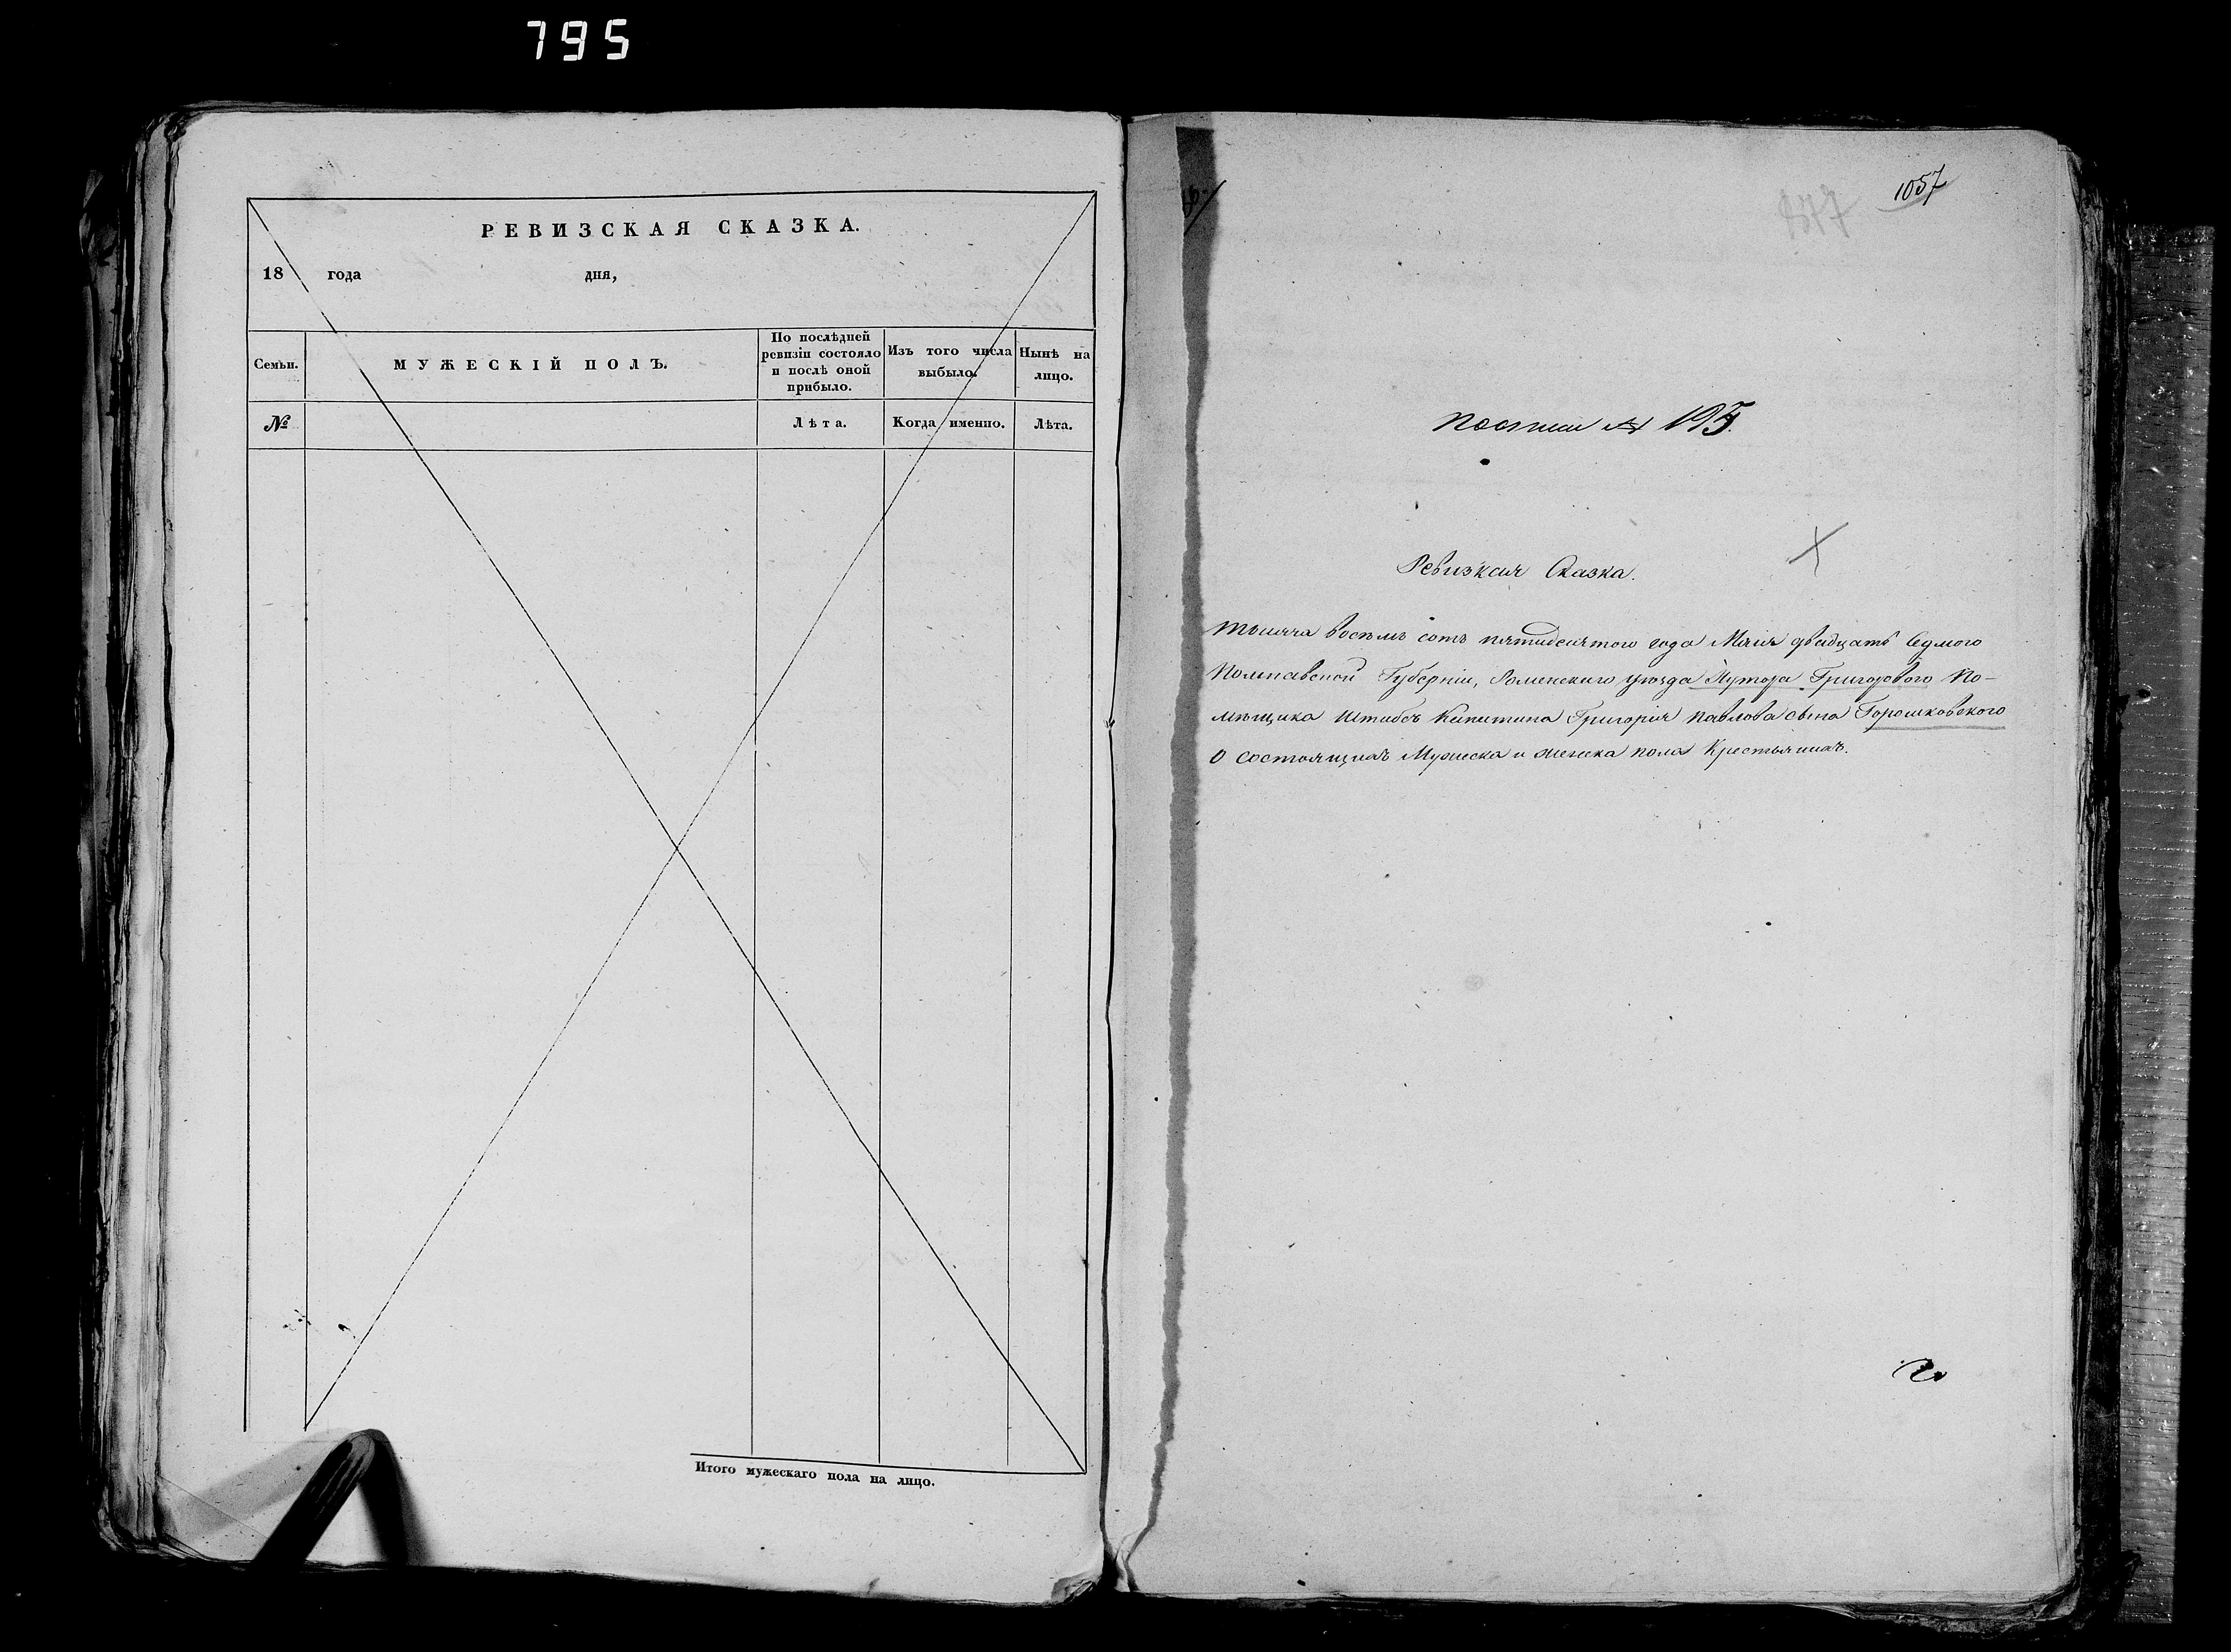 795
РЕВИЗСКАЯ СКАЗКА.
18 года дня,
Семьи.
МУЖЕСКІЙ ПОЛЪ.
По послѣдней ревизіи состояло и послѣ оной прибыло.
Изъ того числа выбыло.
Нынѣ на лицо.
№
Лѣта.
Когда именно.
Лѣта.
Итого мужескаго пола на лицо.
1057
по описи № 195.
Ревизкая Сказка.
тысяча восемь сотъ пятидесятого года Маія двадцать Седмого
Полтавской Губерніи, Роменского уезда Хутора Григорового По-
мѣщика Штабсъ Капитана Григорія Павлова сына Горошковского
О состоящихъ Мужеска и женска пола Крестьянахъ.